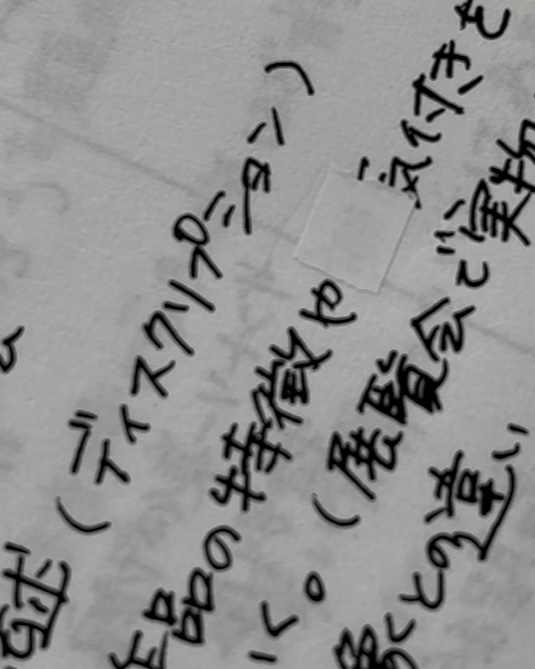 (ディスクリプション)
作品の特徴や 気付きを
く。(展覧会で実物
像との違い